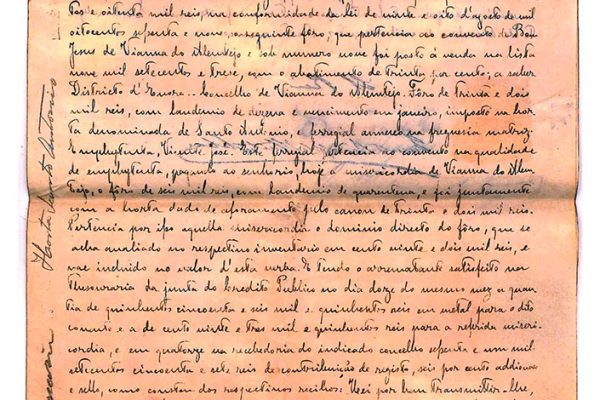 tos e oitenta mil reis, na conformidade da lei de vinte e oito d'agosto de mil
oitocentos sessenta e nove, o seguinte fôro, que pertencia ao convento do Bom
Jesus de Vianna do Alemtejo e sob numero nove foi posto á venda na lista
nove mil setecentos e treze, com o abatimento de trinta por cento; a saber
Districto d'Evora — Concelho de Vianna do Alemtejo. Fôro de trinta e dois
mil reis, com laudemio de dezena e vencimento em janeiro, imposto na hor-
ta denominada de Santo Antonio, e ferregial annexo na freguesia matriz.
Emphyteuta, Vicente José. Este ferregial, pertencia ao convento na qualidade
de emphyteuta, pagando ao senhorio, hoje a misericordia de Vianna do Alem-
tejo, o fôro de seis mil reis, com laudemio de quarentena, e foi juntamente
com a horta dado de aforamento pelo canon de trinta e dois mil reis.
Pertencia por isso aquella misericordia o dominio directo do fôro, que se
acha avaliado no respectivo inventario em cento vinte e dois mil reis, e
vae incluido no valor d'esta verba. E tendo o arrematante satisfeito na
Thesouraria da junta do Credito Publico no dia doze do mesmo mez a quan-
tia de quinhentos cincoenta e seis mil e quinhentos reis em metal para o dito
convento e a de cento vinte e tres mil e quinhentos reis para a referida miseri-
cordia, e em quatorze na recebedoria do indicado concelho sessenta e um mil
setecentos cincoenta e sete reis de contribuição de registo, seis por cento addicionaes
e sello, como consta dos respectivos recibos: Hei por bem transmittir-lhe,
Horta Santo Antonio